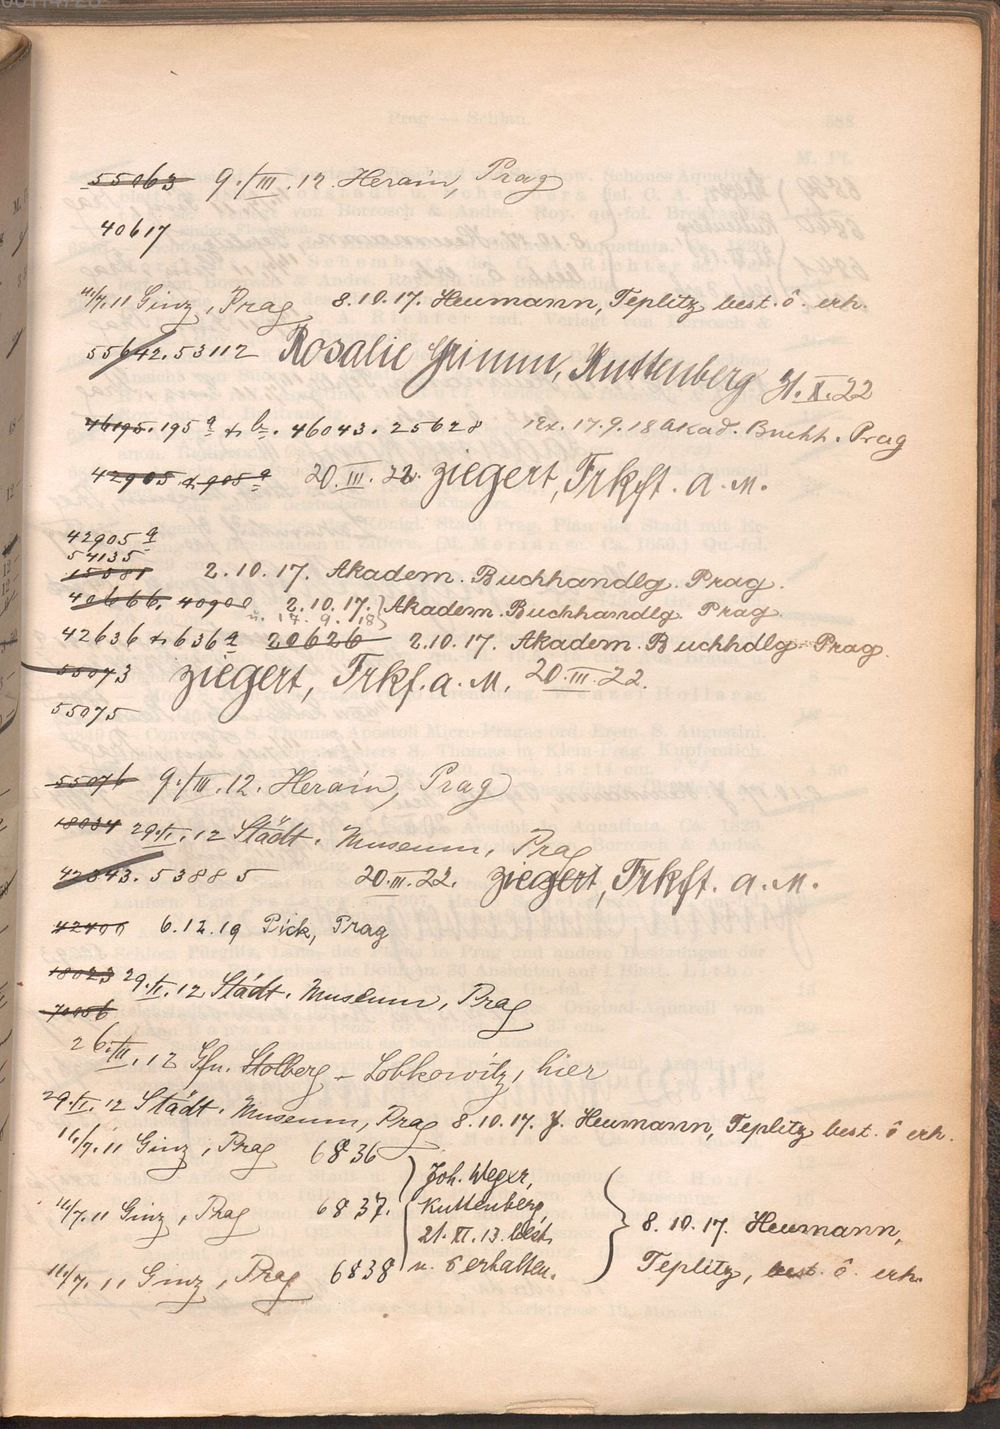 55063 9./III.12. Herain, Prag
40617
11/7.11 Ginz, Prag 8.10.17. Heumann, Teplitz best. ô. erh.
55642. 53112 Rosalie Grimm, Kuttenberg 31.X.22
46195. 195 a + b. 46043. 25628 17.9.18 Akad. Buchh. Prag
42905 + 905 a 20.III.22. Ziegert, Frkft. a. M.
42905 a
54135
15581 2.10.17. Akadem. Buchhandlg. Prag.
40666. 40900 2.10.17. Akadem. Buchhandlg. Prag.
u. 14. 9. 18
42636 + 636 a 20626 2.10.17. Akadem. Buchhdlg. Prag.
55073 Ziegert, Frkf. a. M. 20.III.22.
55075
55076 9./III.12. Herain, Prag
18034 29.II.12 Städt. Museum, Prag
42343. 53885 20.III.22. Ziegert, Frkft. a. M.
42400 6.12.19 Pick, Prag
18023 29.II.12 Städt. Museum, Prag
70056
26.III.12 Gfn. Stolberg - Lobkowitz, hier
29.II.12 Städt. Museum, Prag 8.10.17. J. Heumann, Teplitz best. ô erh.
11/7.11 Ginz, Prag 6836
Joh. Weger,
11/7.11 Ginz, Prag 6837. Kuttenberg,
21.XI.13. best. 8.10.17. Heumann,
11/7.11 Ginz, Prag 6838 u. ô erhalten. Teplitz, best. ô. erh.